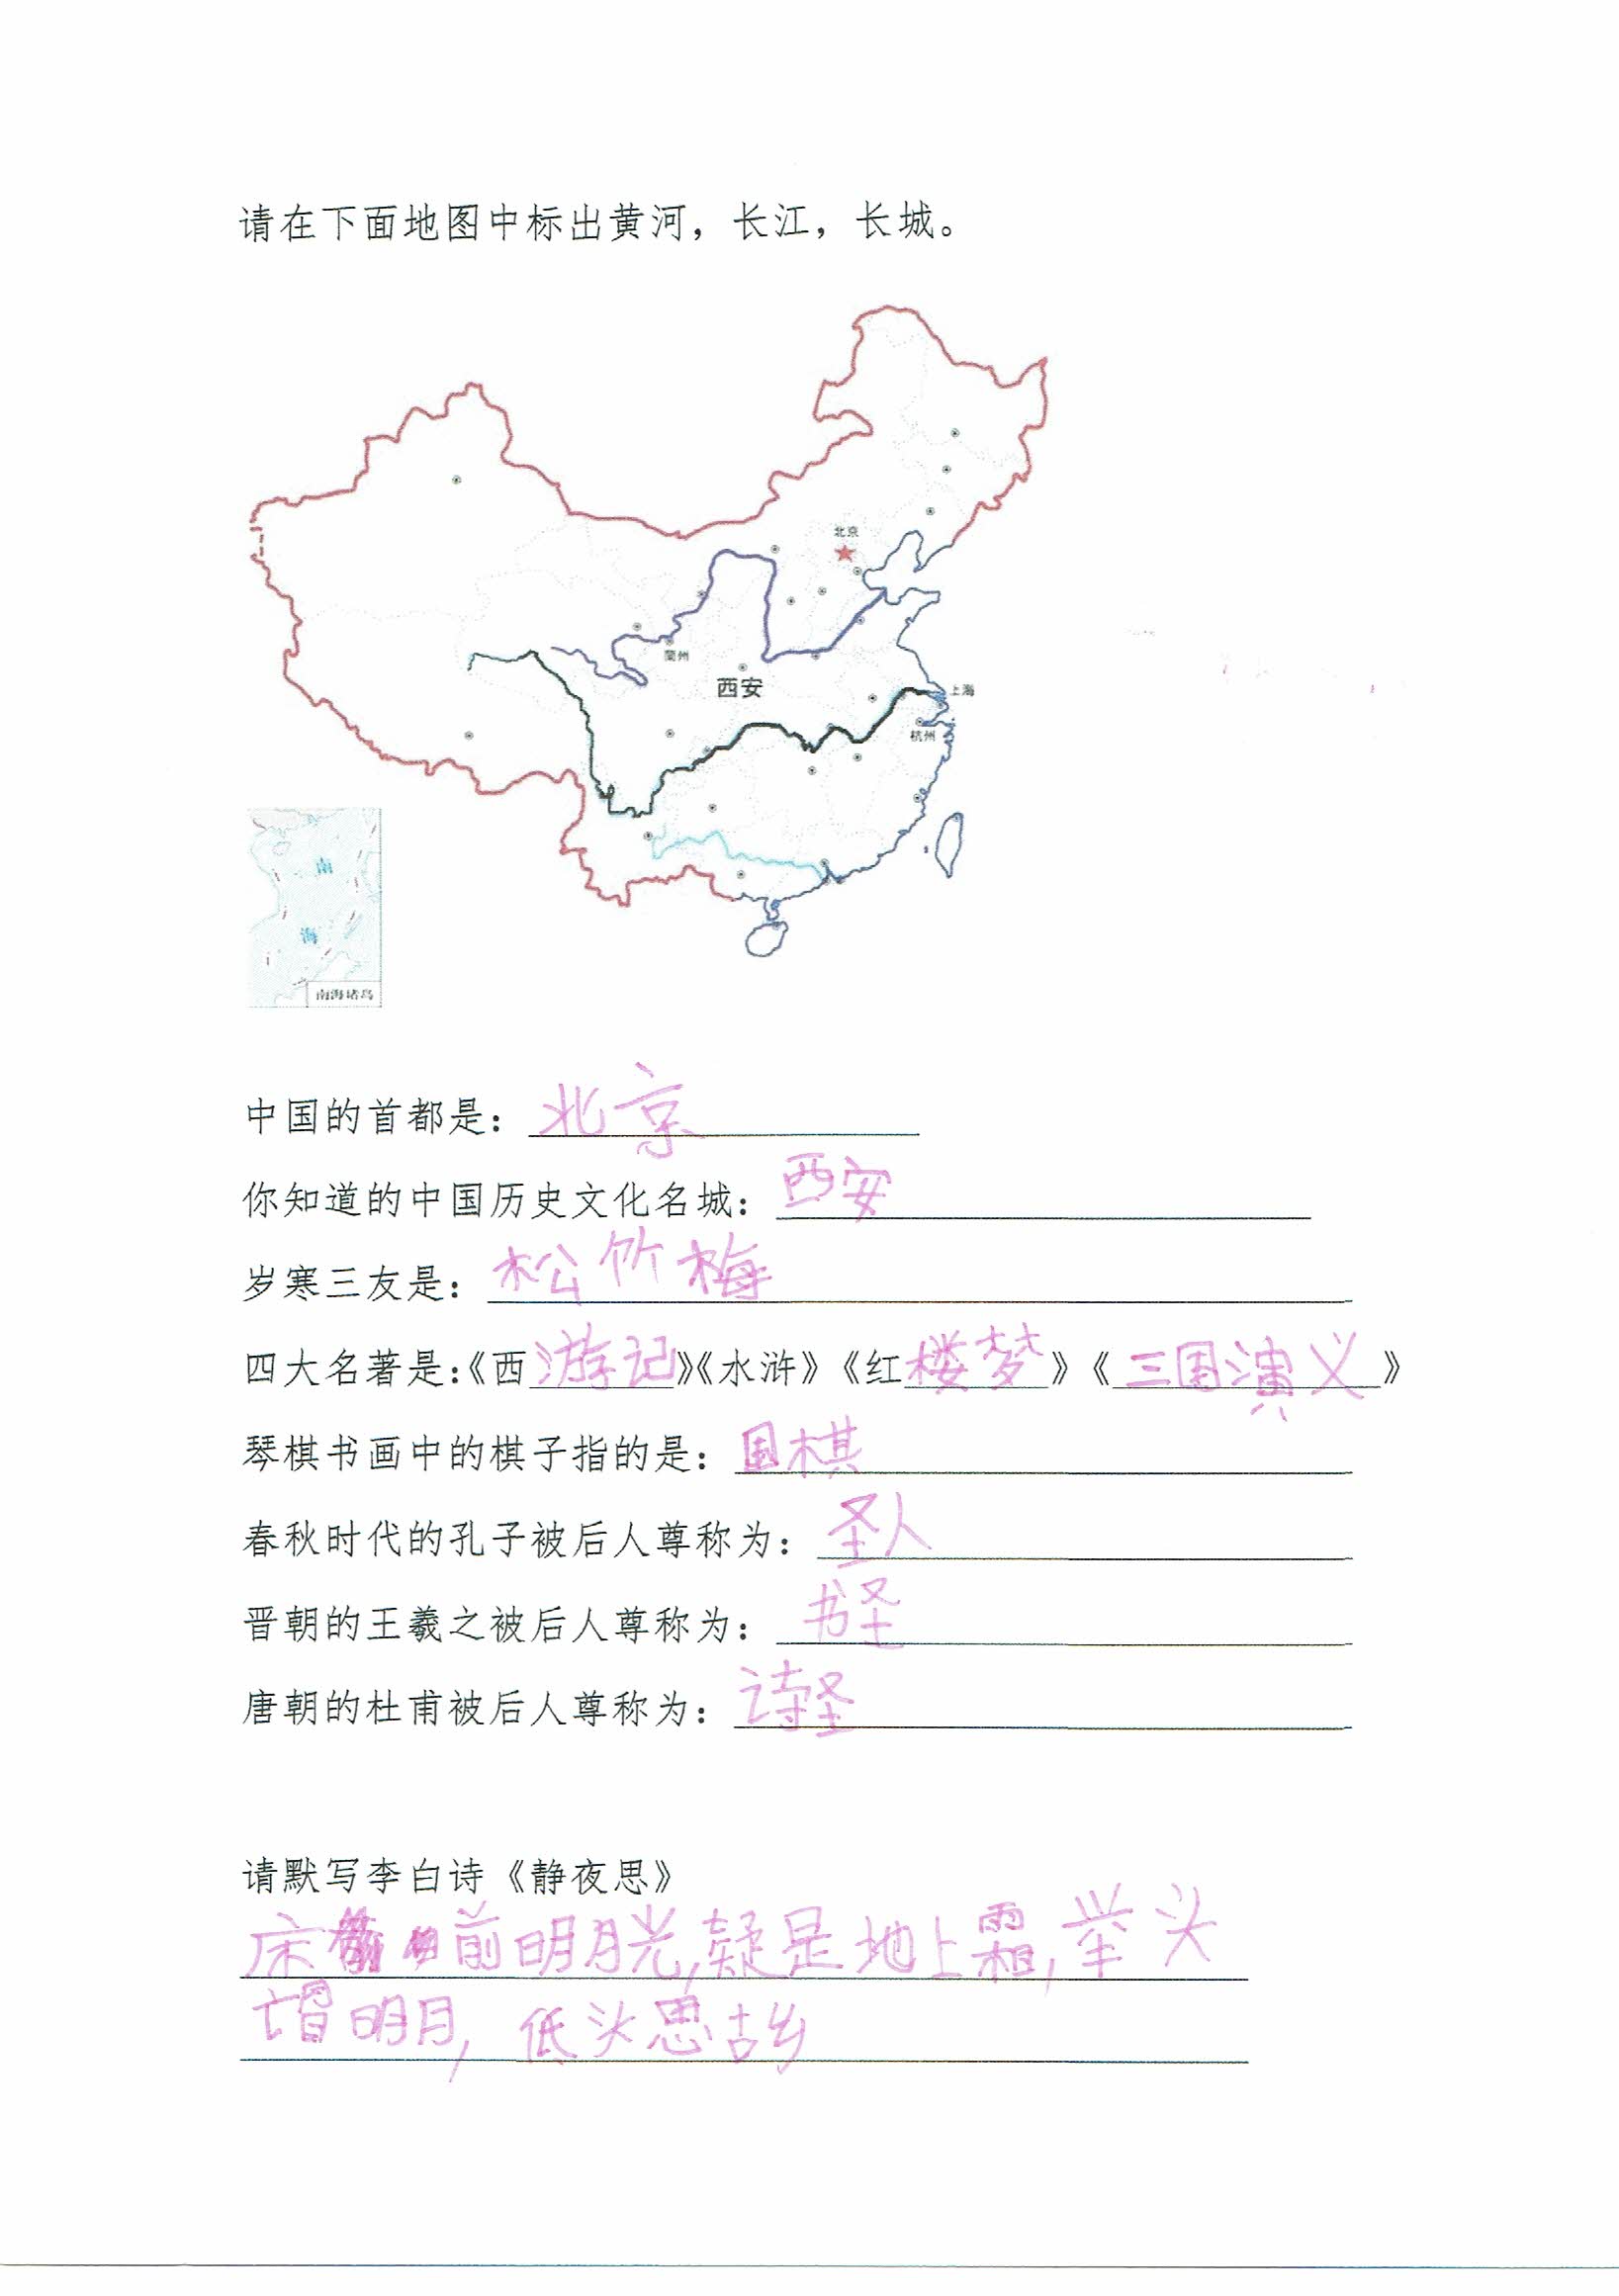 请在下面地图中标出黄河，长江，长城。
北京
蘭州
西安
上海
杭州
南
海
南海诸岛
中国的首都是：北京
你知道的中国历史文化名城：西安
岁寒三友是：松竹梅
四大名著是：《西游记》《水浒》《红楼梦》《三国演义》
琴棋书画中的棋子指的是：围棋
春秋时代的孔子被后人尊称为：圣人
晋朝的王羲之被后人尊称为：书圣
唐朝的杜甫被后人尊称为：诗圣
请默写李白诗《静夜思》
床前明月光，疑是地上霜，举头
望明月，低头思古乡